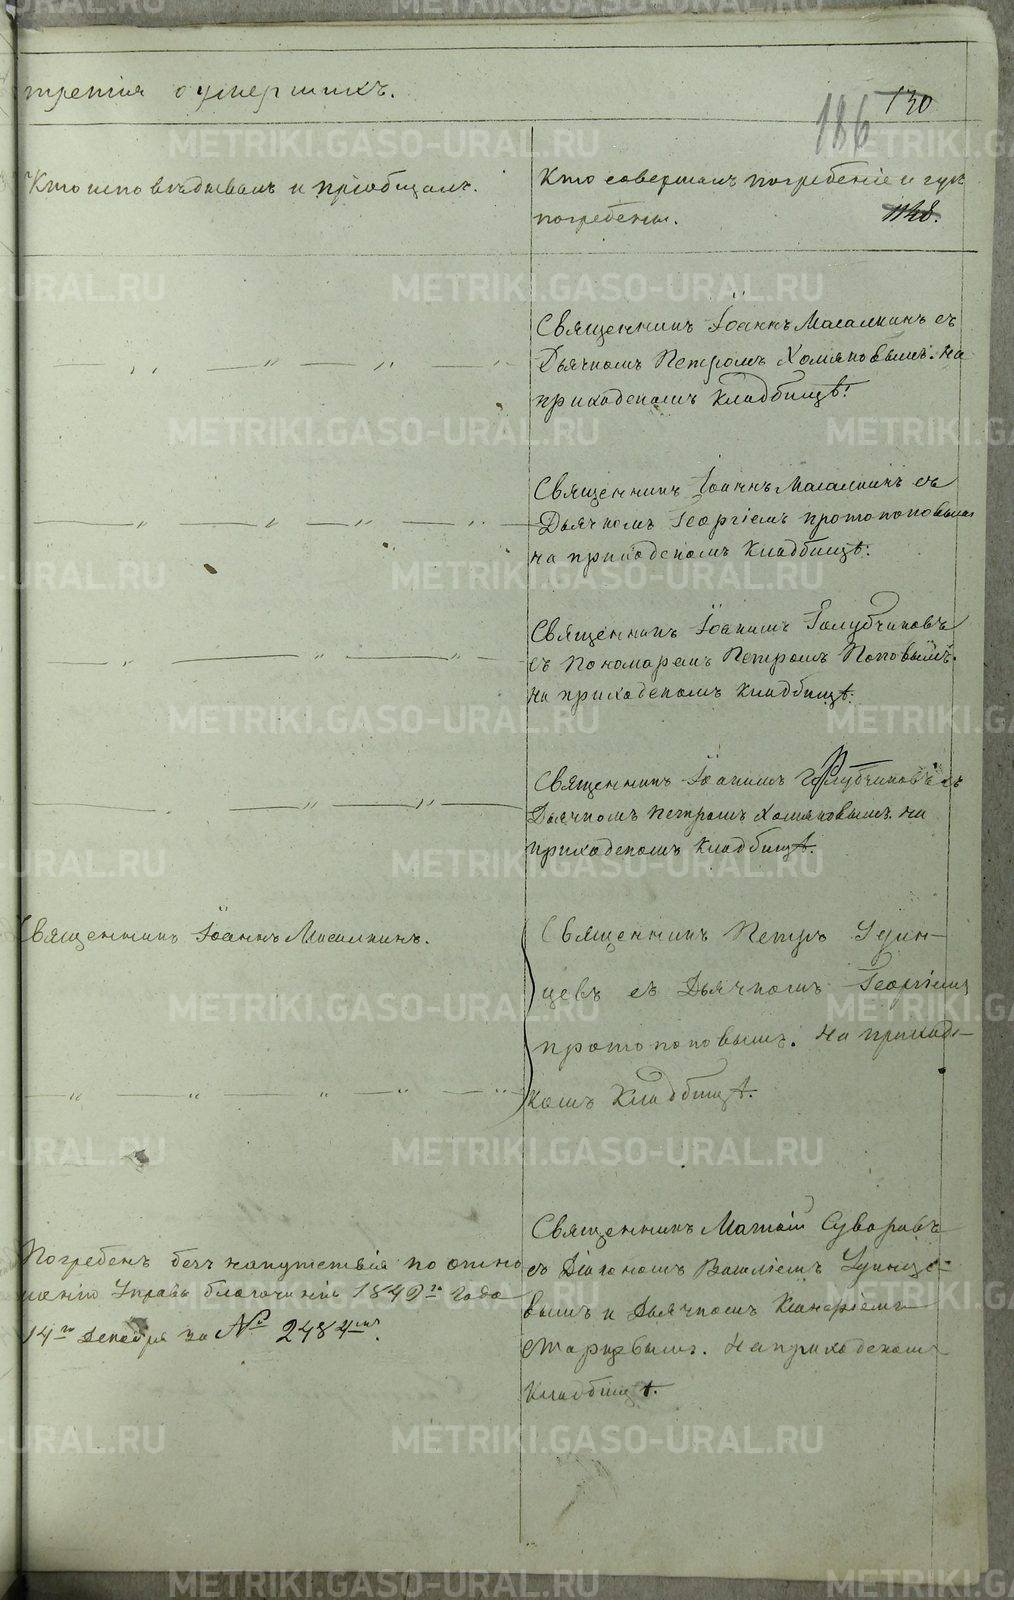 третія о умершихъ.
186 130
Кто исповѣдывалъ и пріобщалъ.
Кто совершалъ погребеніе и гдѣ
погребены. 1128.
Священникъ Іоаннъ Масалкинъ съ
Дьячкомъ Петромъ Хомяковымъ. На
приходскомъ Кладбищѣ.
Священникъ Іоаннъ Масалкинъ съ
Дьячкомъ Георгіемъ Протопоповымъ
на приходскомъ Кладбищѣ.
Священникъ Іоакимъ Голубчиковъ
съ Пономаремъ Петромъ Поповымъ.
на приходскомъ Кладбищѣ.
Священникъ Іоакимъ Голубчиковъ съ
Дьячкомъ Петромъ Хомяковымъ. на
приходскомъ Кладбищѣ.
Священникъ Іоаннъ Масалкинъ.
Священникъ Петръ
цевъ съ Дьячкомъ Георгіемъ
Протопоповымъ. На приход-
комъ Кладбищѣ.
Погребенъ безъ напутствія по отно
шенію Управы благочинія 1840го года
14го Декабря за № 2484мъ.
Священникъ Матѳій Суворовъ
съ Діакономъ Василіемъ
вымъ и Дьячкомъ
На приходскомъ
Кладбищѣ.
METRIKI.GASO-URAL.RU